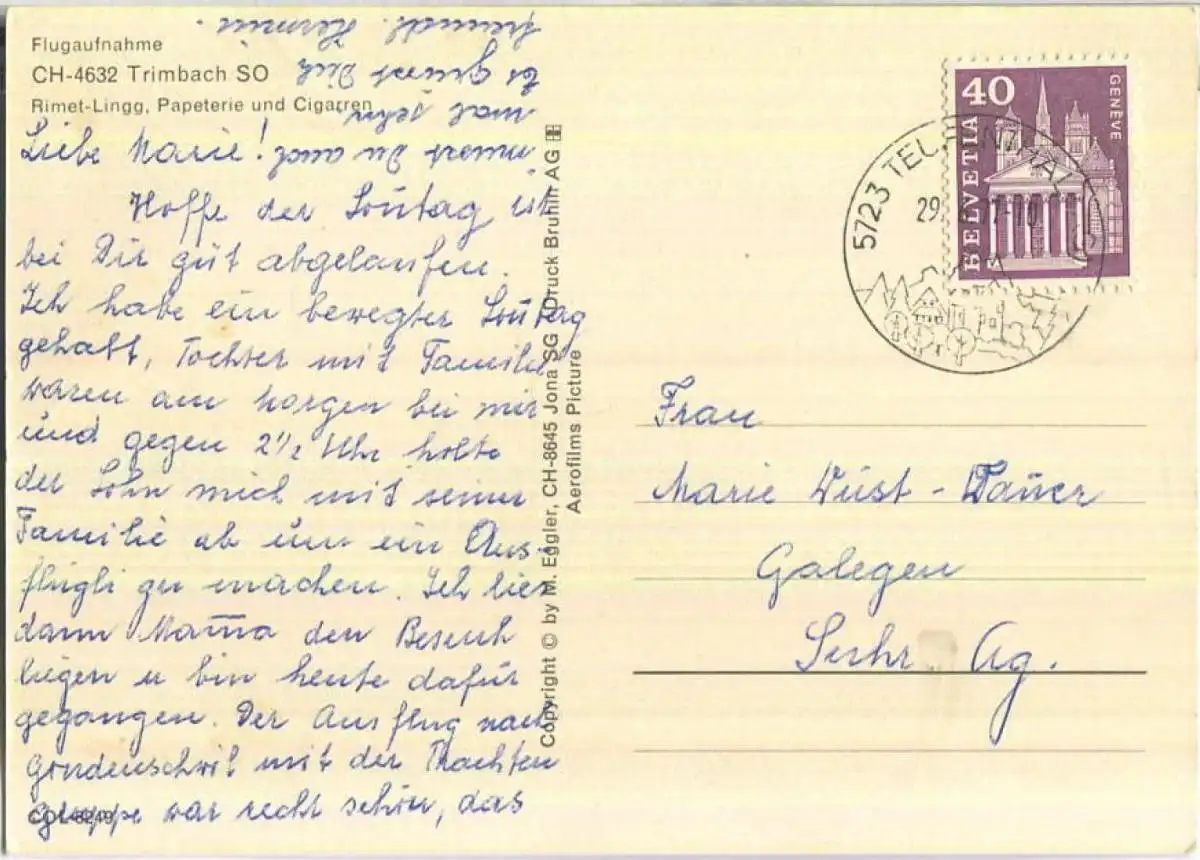 Flugaufnahme
CH-4632 Trimbach SO
Rimet-Lingg, Papeterie und Cigarren
Liebe Marie!
Hoffe der Sontag ist
bei Dir gut abgelaufen.
Ich habe ein bewegter Sontag
gehabt, Tochter mit Familie
waren am morgen bei mir
und gegen 2½ Uhr holte
der Sohn mich mit seiner
Familie ab um ein Aus-
flügli zu machen. Ich lies
dann Mama den Besuch
liegen u bin heute dafür
gegangen. Der Ausflug nach
mit der Trachten
gruppe war recht schön, das
must du auch
mal sehn
Es Grüsst Dich
freundl. Hermin
COL 8249
Copyright © by M. Eggler, CH-8645 Jona SG / Druck Bruhin AG
Aerofilms Picture
40
GENÈVE
HELVETIA
5723 TEUFENTHAL
29.
Frau
Marie Wüst-Dauer
Galegen
Suhr Ag.